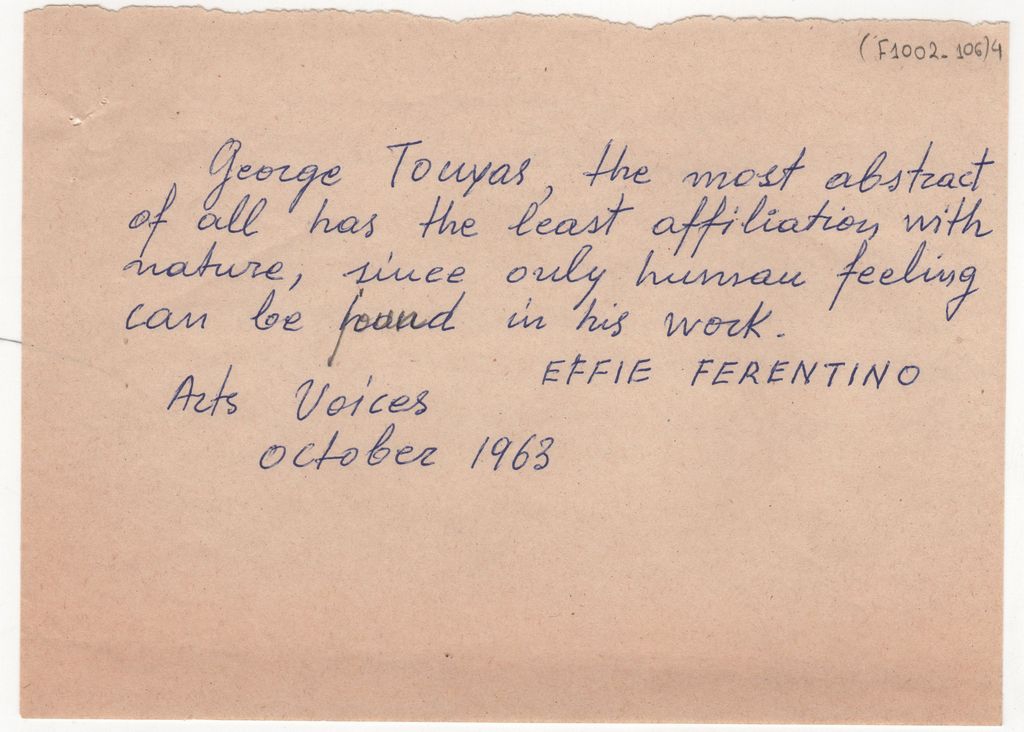 (F1002-106)4
George Touyas, the most abstract
of all has the least affiliation with
nature, since only human feeling
can be found in his work.
EFFIE FERENTINO
Arts Voices
October 1963